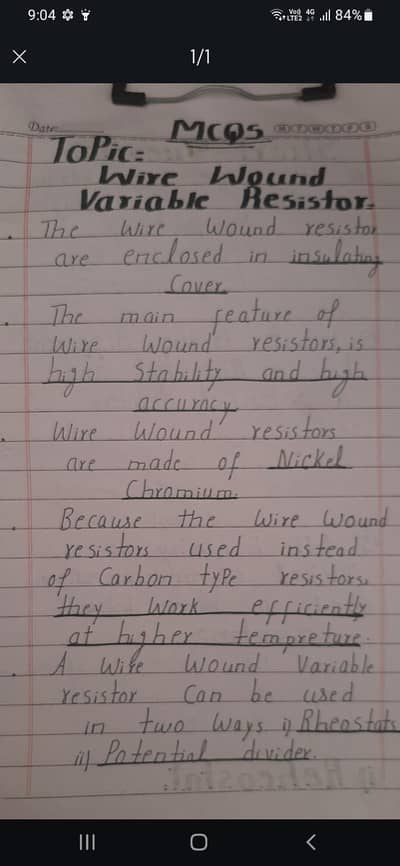 9:04
Vo) 4G LTE2 84%
1/1
Date:
MCQS
M T W T F S
ToPic:
Wire Wound
Variable Resistor.
The Wire Wound resistor
are enclosed in insulating
Cover.
The main feature of
Wire Wound resistors, is
high Stability and high
accuracy
Wire Wound resistors
are made of Nickel
Chromium.
Because the Wire Wound
resistors used instead
of Carbon tyPe resistors.
they Work efficiently
at higher tempreture.
A Wire Wound Variable
resistor Can be used
in two Ways i) Rheostats
ii) Potential divider.